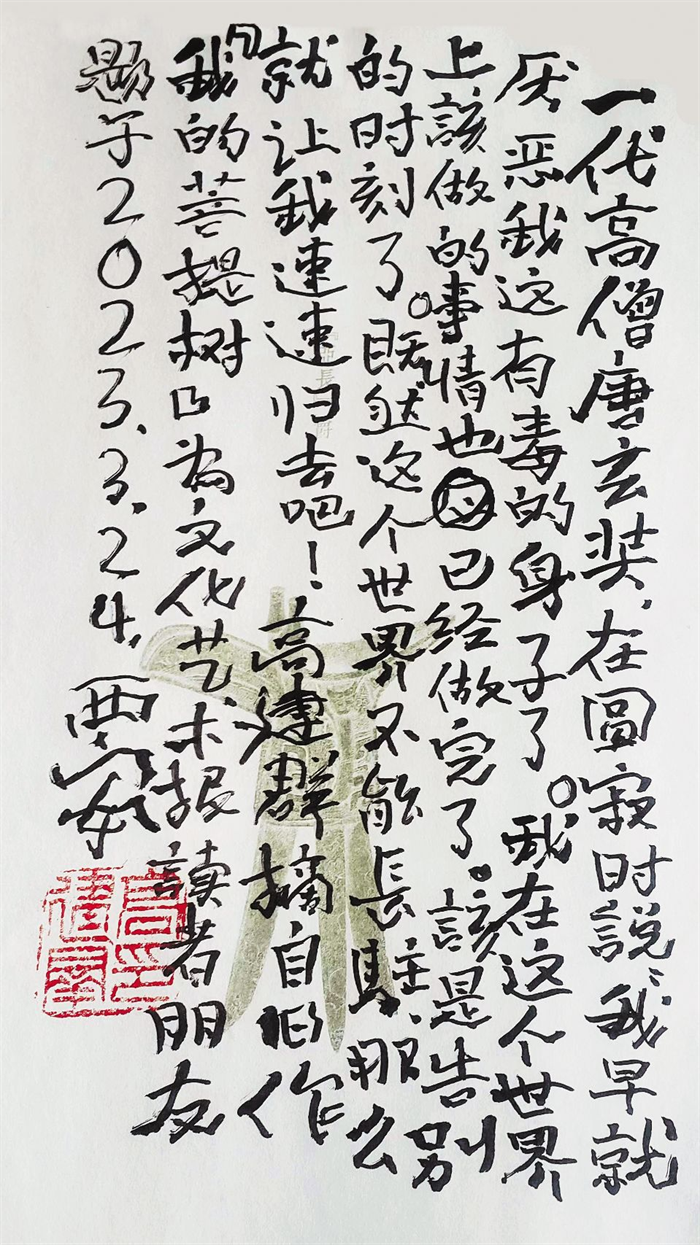 一代高僧唐玄奘，在圓寂时説：我早就
厌恶我这有毒的身子了。我在这个世界
上該做的事情也已经做完了。該是告别
的时刻了。既然这个世界不能長駐，那么
就让我速速归去吧！高建群摘自旧作
我的菩提树以为文化艺术报讀者朋友
题于2023.3.24.西安